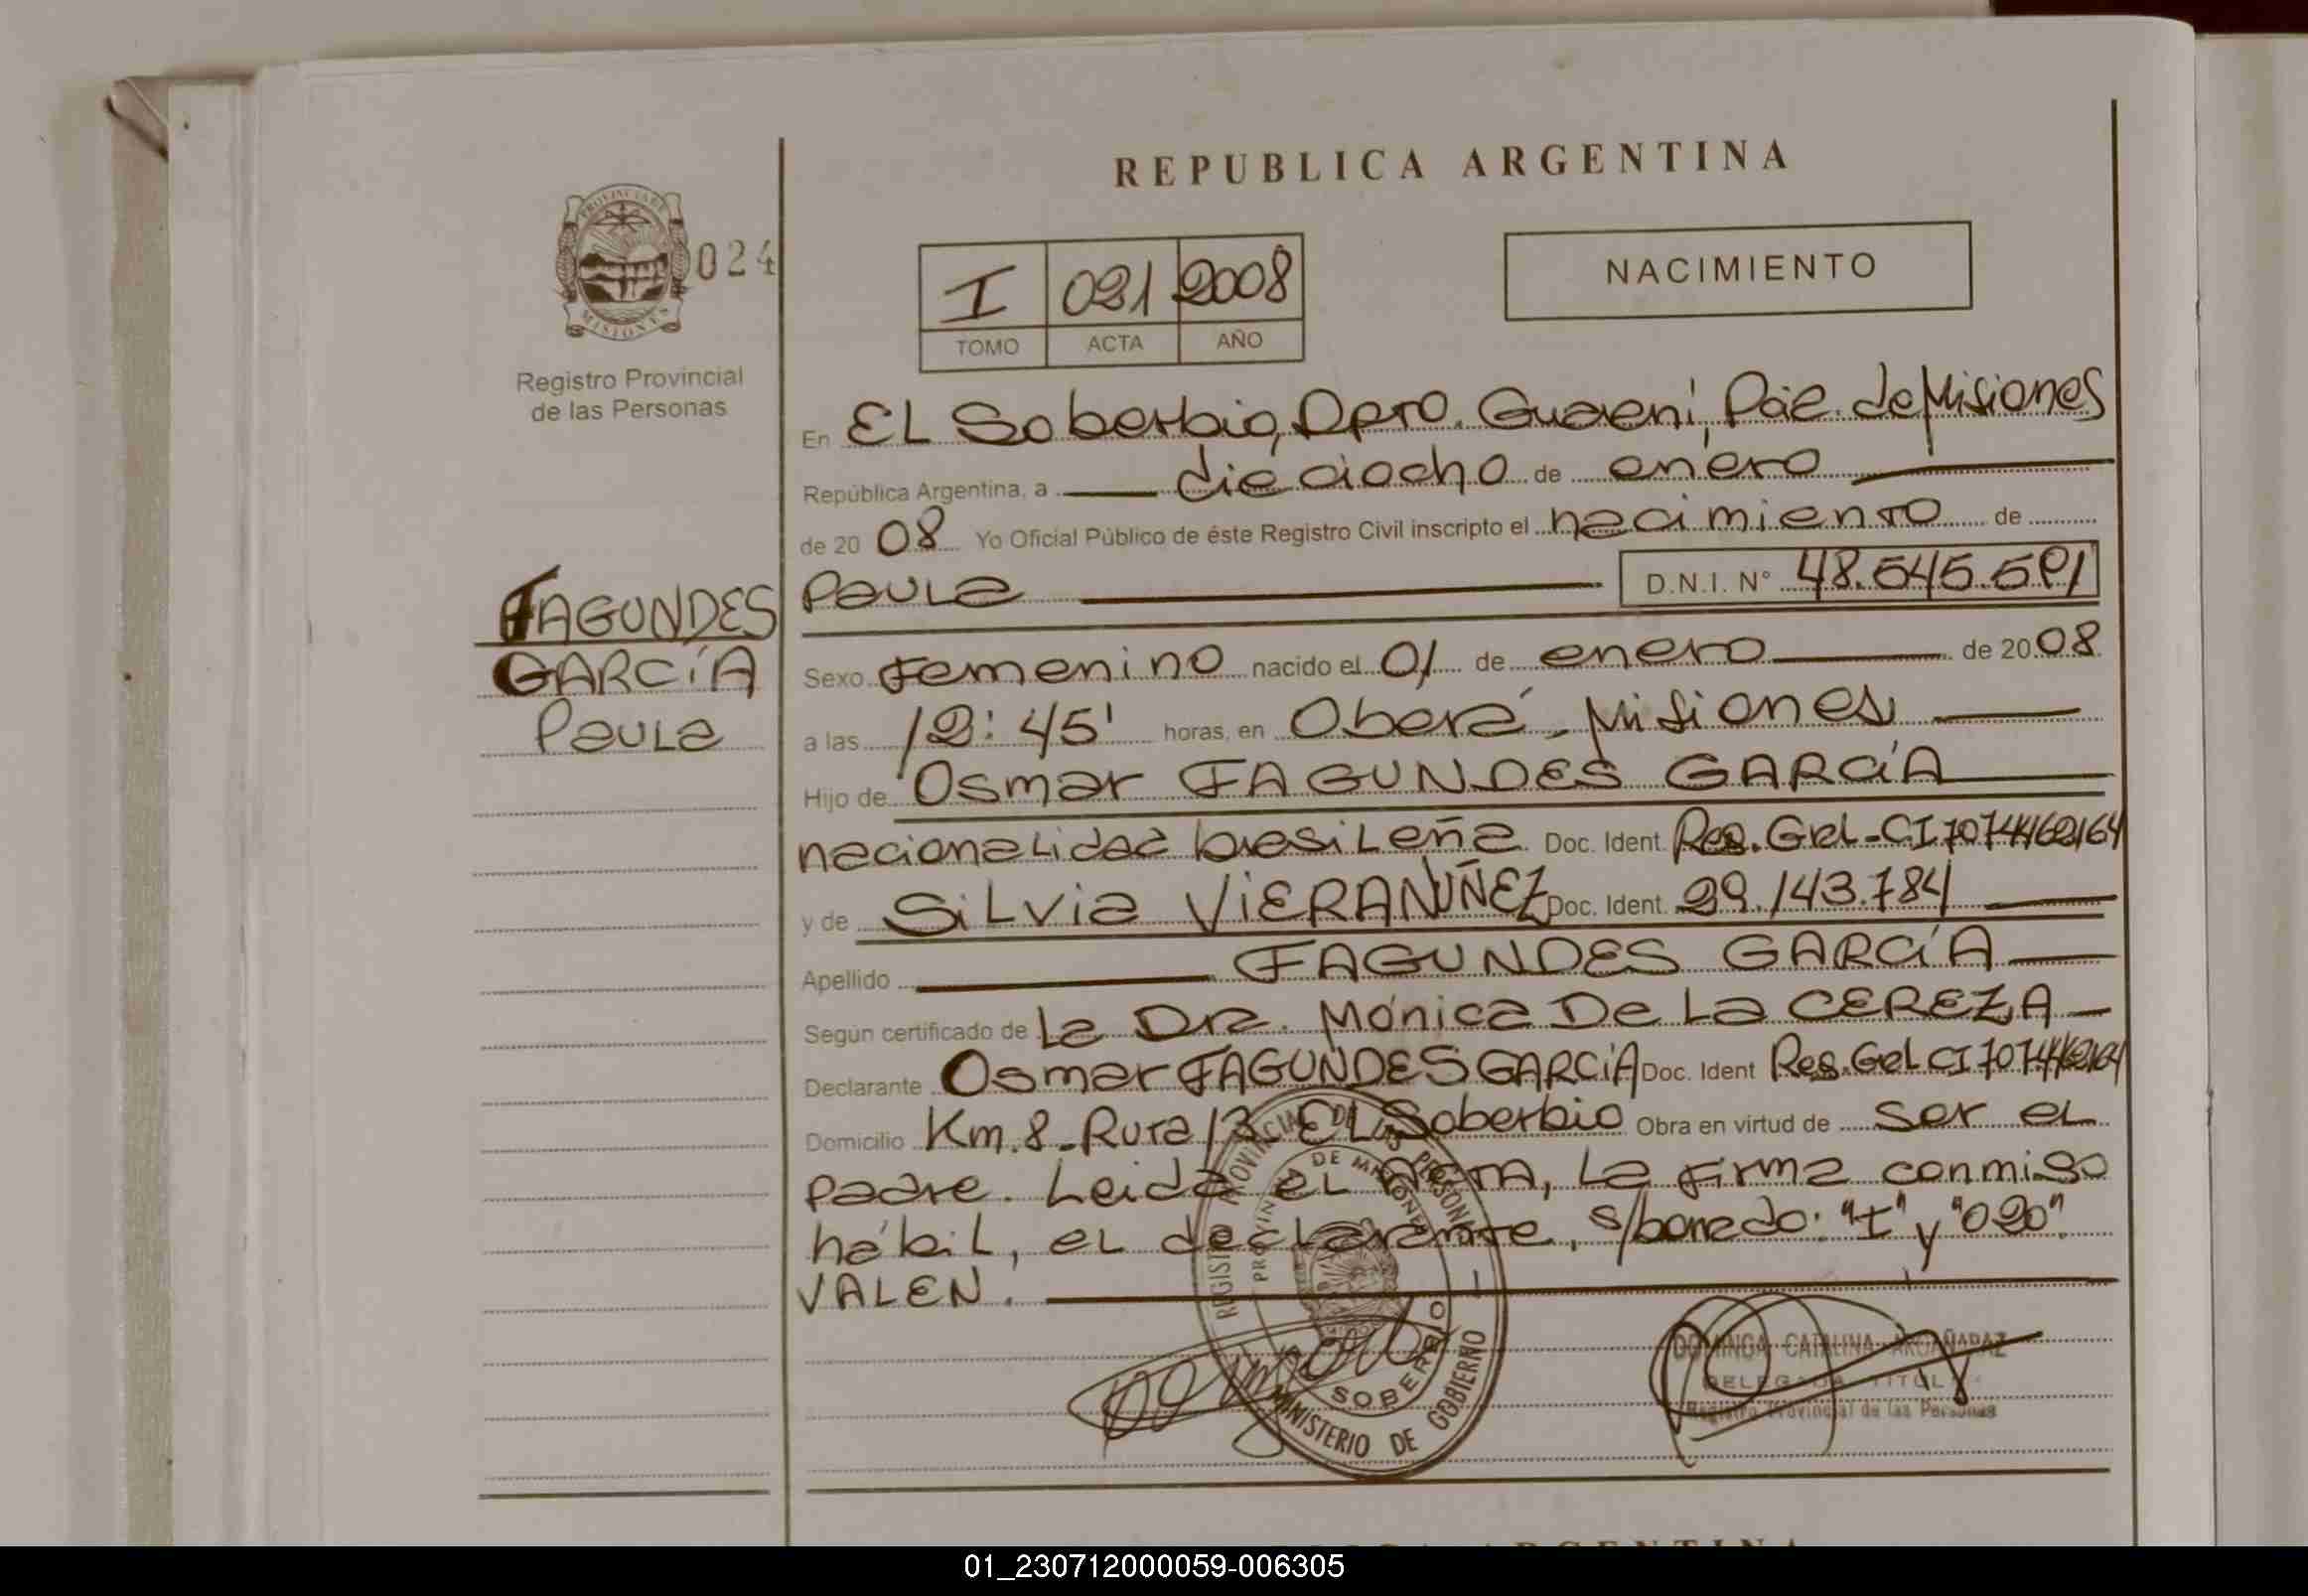 REPUBLICA ARGENTINA
PROVINCIA DE
MISIONES
024
Registro Provincial
de las Personas
I 021 2008
TOMO ACTA AÑO
NACIMIENTO
En EL Soberbio, Dpto. Guaraní, Pcia. de Misiones
República Argentina, a dieciocho de enero
de 20 08 Yo Oficial Público de éste Registro Civil inscripto el nacimiento de
Paula D.N.I. N° 48.545.591
FAGUNDES
GARCÍA
Paula
Sexo Femenino nacido el 01 de enero de 20 08
a las 12:45' horas, en Oberá - Misiones
Hijo de Osmar FAGUNDES GARCÍA
nacionalidad brasileña Doc. Ident. Reg. Gral - CI
y de Silvia VIERA NÚÑEZ Doc. Ident. 29.143.784
Apellido FAGUNDES GARCÍA
Según certificado de La Dra. Mónica De La CEREZA
Declarante Osmar FAGUNDES GARCÍA Doc. Ident Reg. Gral CI
Domicilio Km. 8 - Ruta 13 - EL Soberbio Obra en virtud de ser el
padre. Leída el Acta, la firma conmigo
hábil, el declarante, s/borrado: "I" y "020".
VALEN.
REGISTRO PROVINCIAL DE LAS PERSONAS
PROVINCIA DE MISIONES
SOBERBIO
MINISTERIO DE GOBIERNO
DOMINGA CATALINA ARGAÑARAZ
DELEGADA TITULAR
Registro Provincial de las Personas
01_230712000059-006305